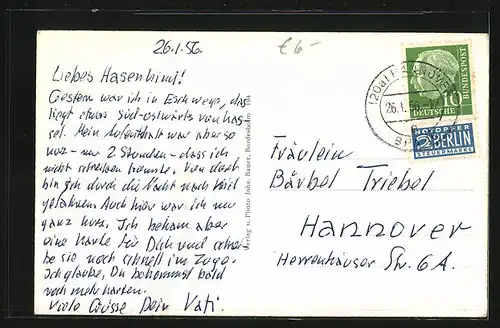 26.1.56.
€ 6-
Liebes Hasenkind!
Gestern war ich in Eschwege, das
liegt etwas süd-ostwärts von Kas-
sel. Mein Aufenthalt war aber so
kurz - nur 2 Stunden - dass ich
nicht schreiben konnte. Von dort
bin ich durch die Nacht nach Kiel
gefahren. Auch hier war ich nur
ganz kurz. Ich bekam aber
eine Karte für Dich und schrei-
be sie noch schnell im Zuge.
Ich glaube, Du bekommst bald
noch mehr Karten.
Viele Grüsse Dein Vati.
Verlag u. Photo Johs. Bauer, Bordesholm
(20a) HANNOVER
26.1.56
DEUTSCHE BUNDESPOST
10
NOTOPFER
2 BERLIN
STEUERMARKE
Fräulein
Bärbel Triebel
Hannover
Herrenhäuser Str. 6A.